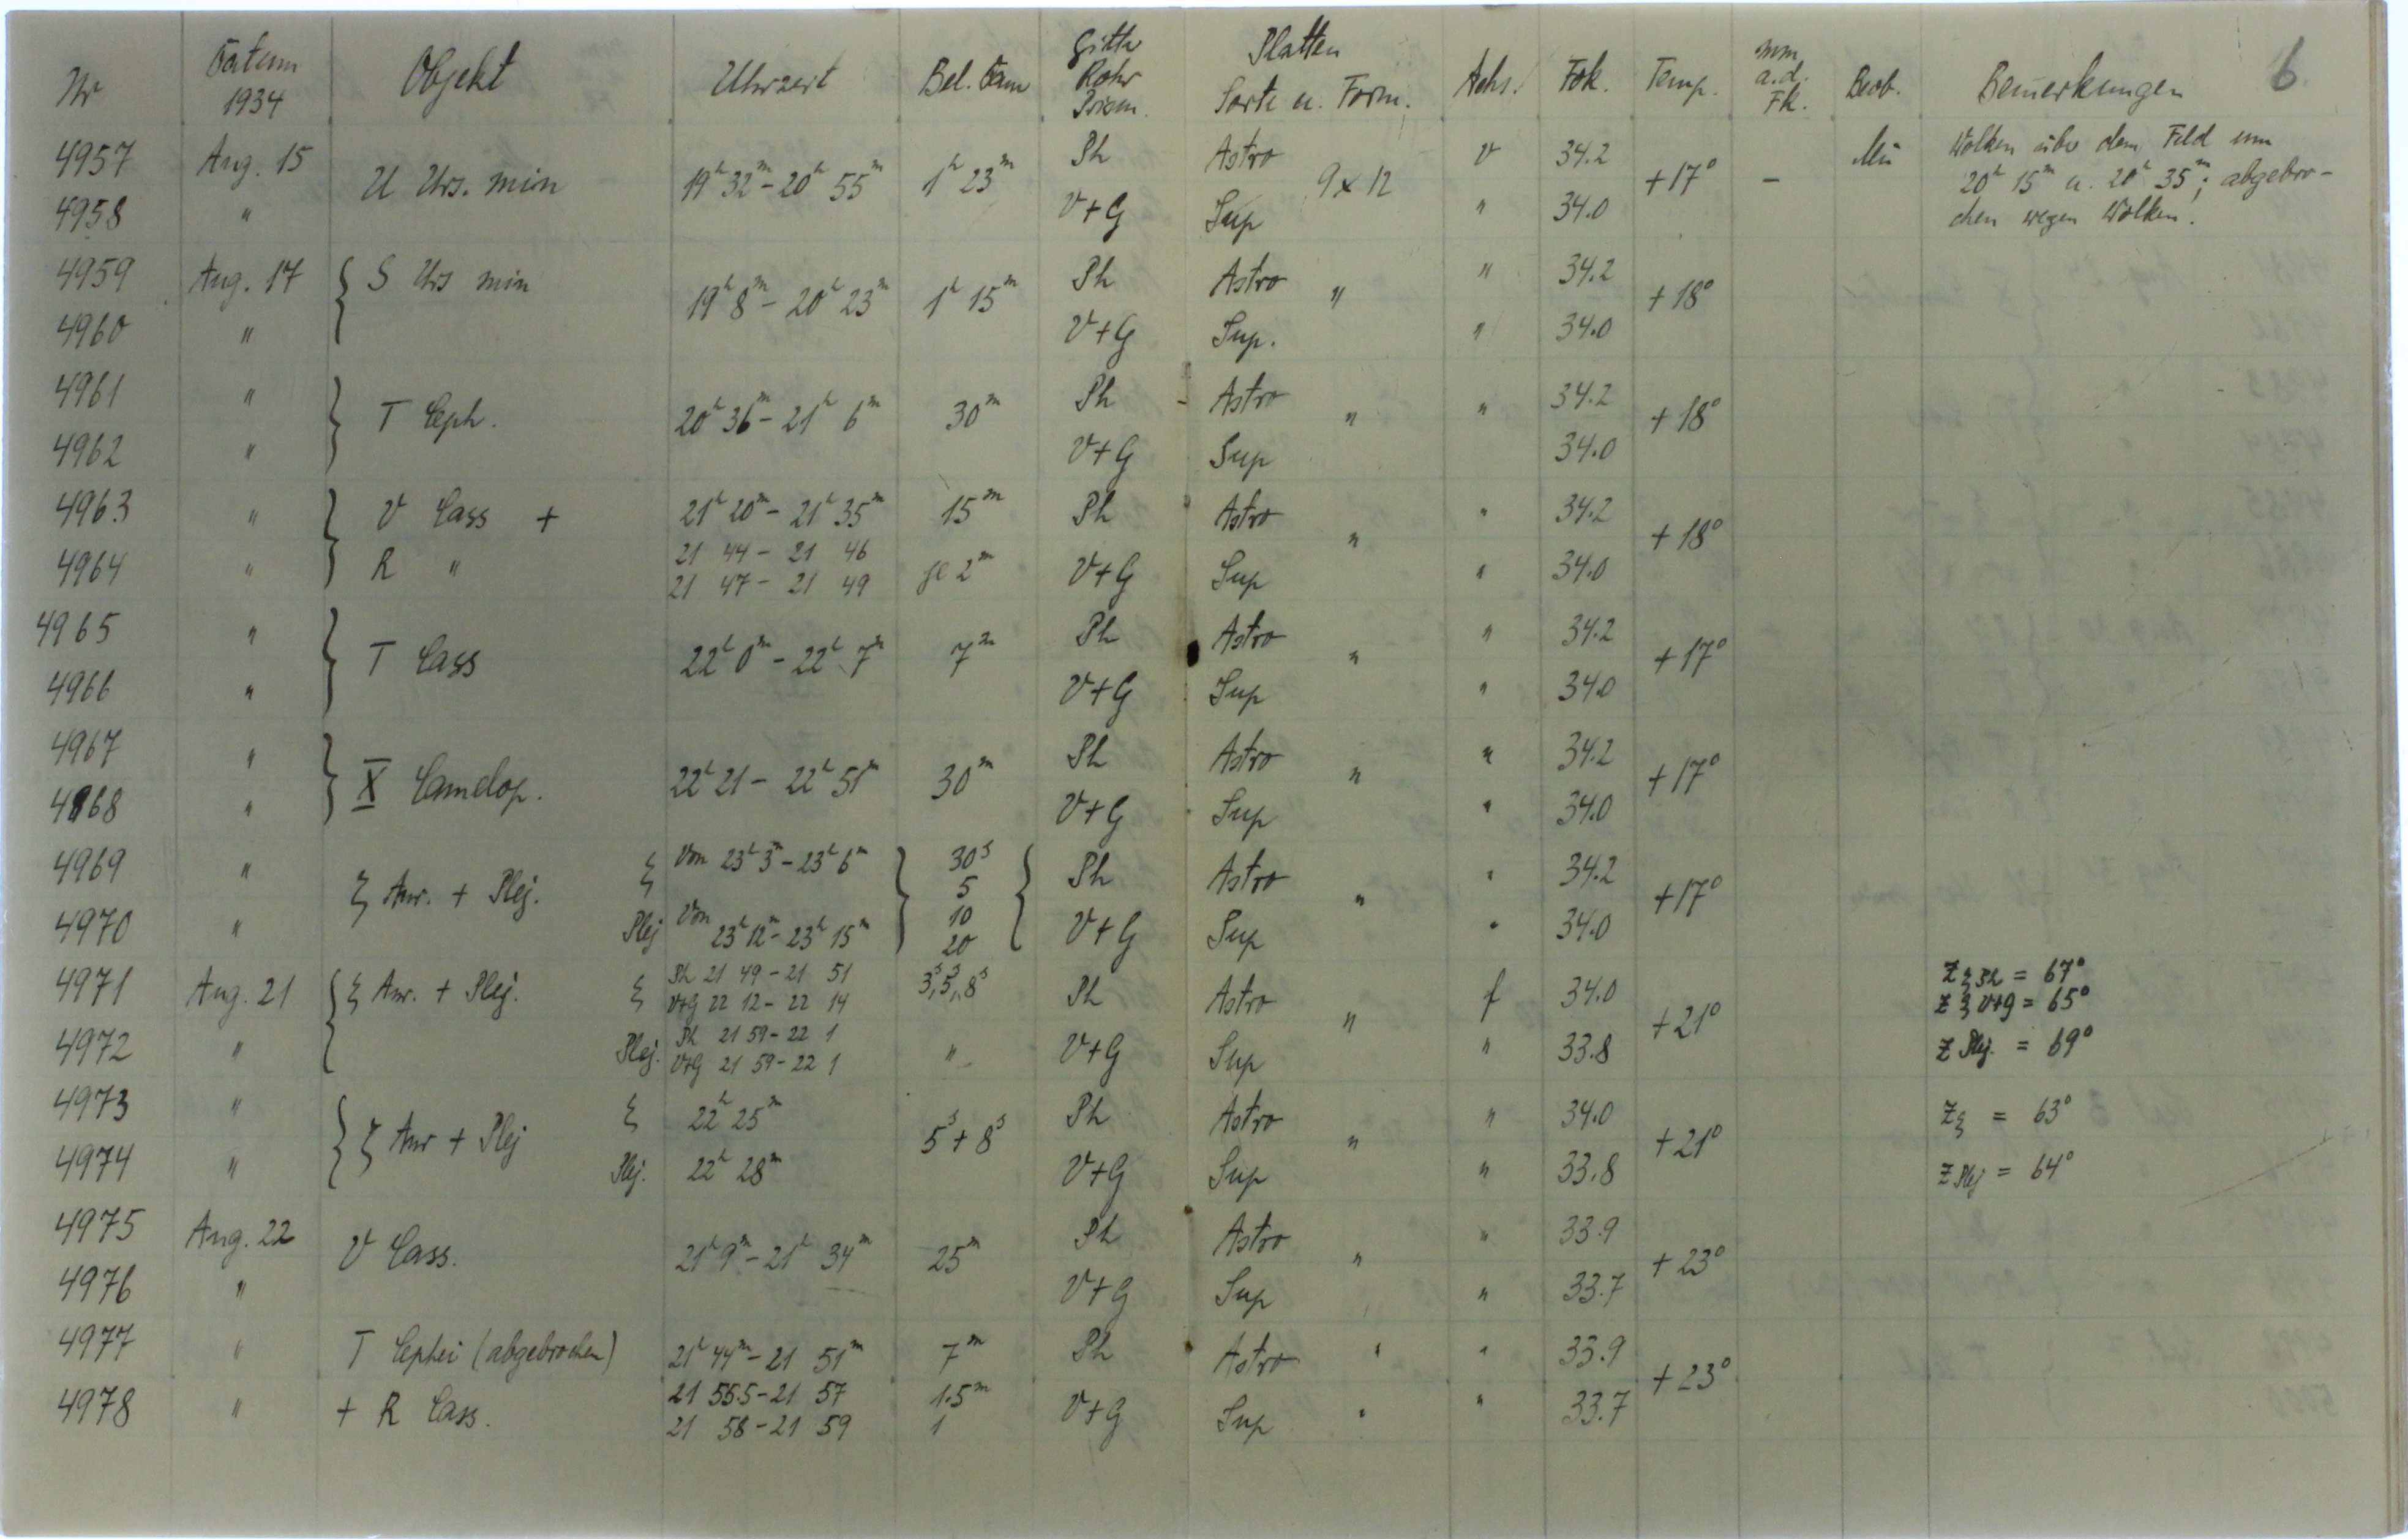 6
Nr Datum 1934 Objekt Uhrzeit Bel. Dau Gitter Rohr Prism. Platten Sorte u. Form. Achs. Fok. Temp. mm a.d. Fk. Beob. Bemerkungen
4957 Aug. 15 U Urs. min 19h 32m - 20h 55m 1h 23m Ph Astro 9x12 v 34.2 +17° - Mü Wolken über dem Feld um
20h 15m u. 20h 35m; abgebro-
4958 " V+G Sup " 34.0 chen wegen Wolken.
4959 Aug. 17 { S Urs min 19h 8m - 20h 23m 1h 15m Ph Astro " " 34.2 +18°
4960 " V+G Sup. " 34.0
4961 " } T Ceph. 20h 36m - 21h 6m 30m Ph Astro " " 34.2 +18°
4962 " V+G Sup 34.0
4963 " } V Cass + 21h 20m - 21h 35m 15m Ph Astro " " 34.2 +18°
21 44 - 21 46
4964 " R " 21 47 - 21 49 je 2m V+G Sup " 34.0
4965 " } T Cass 22h 0m - 22h 7m 7m Ph Astro " " 34.2 +17°
4966 " V+G Sup " 34.0
4967 " } X Camelop. 22h 21 - 22h 51m 30m Ph Astro " " 34.2 +17°
4968 " V+G Sup " 34.0
4969 " ξ Aur. + Plej. ξ Von 23h 3m - 23h 6m } 30s 5 { Ph Astro " " 34.2 +17°
4970 " Plej Von 23h 12m - 23h 15m 10 20 V+G Sup " 34.0
4971 Aug. 21 { ξ Aur. + Plej. ξ Ph 21 49 - 21 51 3s, 5s, 8s Ph Astro " f 34.0 +21° z ξ Ph = 67°
V+G 22 12 - 22 14 z ξ V+G = 65°
4972 " Plej. Ph 21 59 - 22 1 " V+G Sup " 33.8 z Plej. = 69°
V+G 21 59 - 22 1
4973 " { ξ Aur + Plej ξ 22h 25m 5s + 8s Ph Astro " " 34.0 +21° zξ = 63°
4974 " Plej. 22h 28m V+G Sup " 33.8 z Plej = 64°
4975 Aug. 22 V Cass. 21h 9m - 21h 34m 25m Ph Astro " " 33.9 +23°
4976 " V+G Sup " 33.7
4977 " T Cephei (abgebrochen) 21h 44m - 21 51m 7m Ph Astro " " 33.9 +23°
21 55.5 - 21 57 1.5m
4978 " + R Cass. 21 58 - 21 59 1 V+G Sup " " 33.7